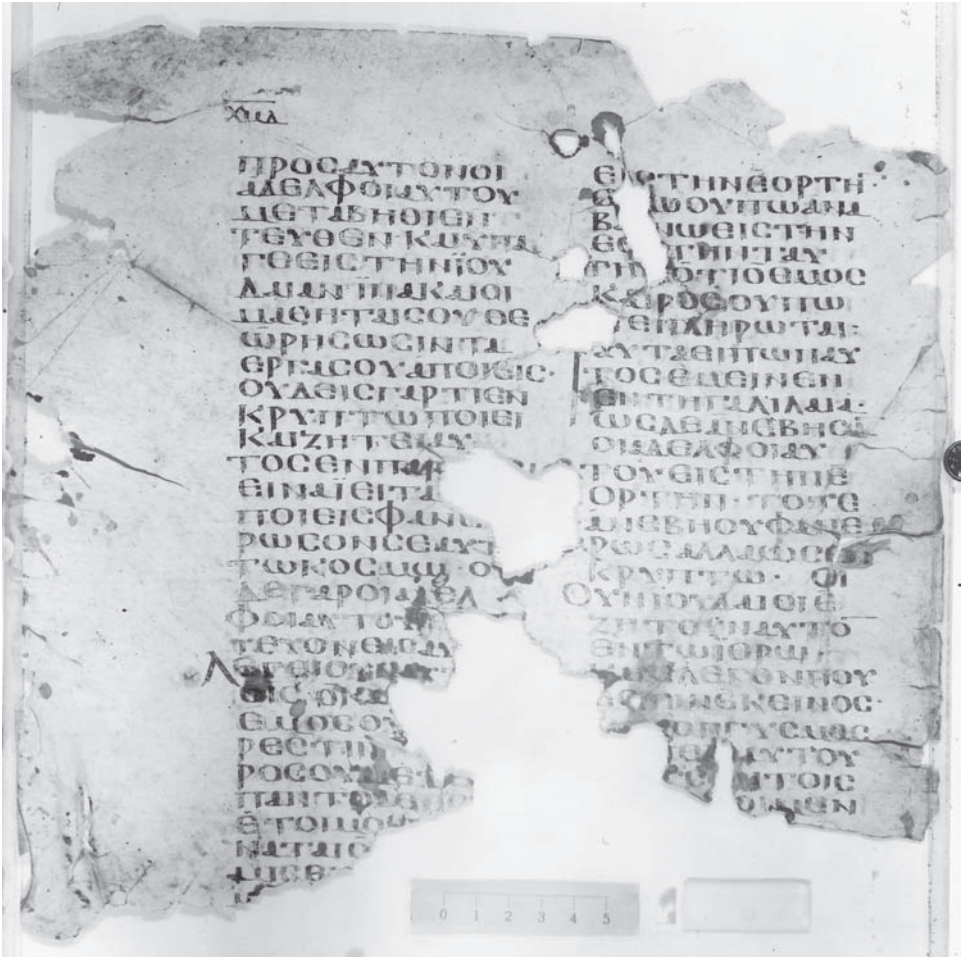 ΧΜΔ
ΠΡΟCΑΥΤΟΝΟΙ
ΑΔΕΛΦΟΙΑΥΤΟΥ
ΜΕΤΑΒΗΘΙΕΝ
ΤΕΥΘΕΝΚΑΙΥΠΑ
ΓΕΕΙCΤΗΝΪΟΥ
ΔΑΙΑΝΙΝΑΚΑΙΟΙ
ΜΑΘΗΤΑΙCΟΥΘΕ
ΩΡΗCΩCΙΝΤΑ
ΕΡΓΑCΟΥΑΠΟΙΕΙC·
ΟΥΔΕΙCΓΑΡΤΙΕΝ
ΚΡΥΠΤΩΠΟΙΕΙ
ΚΑΙΖΗΤΕΙΑΥ
ΤΟCΕΝΠΑΡ
ΕΙΝΑΪΕΙΤΑ
ΠΟΙΕΙCΦΑΝΕ
ΡΩCΟΝCΕΑΥΤ
ΤΩΚΟCΜΩ·Ο
ΔΕΓΑΡΟΙΑΔΕΛ
ΦΟΙΑΥΤΟΥ
ΤΕΥΟΝΕΙCΑΥ
ΛΕΓΕΙΟΥΝΑΥ
ΟΙCΟΚΑ
ΕΜΟCΟΥ
ΡΕCΤΙΝ
ΡΟCΟΥΜΕΤΕ
ΠΑΝΤΟΤΕ
ΕΤΟΙΜΟ
ΝΑΤΑΙΟ
ΜΙCΕ
ΕΙCΤΗΝΕΟΡΤΗ
ΕΓΩΟΥΠΩΑΝΑ
ΒΑΙΝΩΕΙCΤΗΝ
ΕΟΡΤΗΝΤΑΥ
ΤΗΝΟΤΙΟΕΜΟC
ΚΑΙΡΟCΟΥΠΩ
ΠΕΠΛΗΡΩΤΑΙ:
ΑΥΤΑΕΙΠΩΝΑΥ
ΤΟCΕΜΕΙΝΕΝ
ΕΝΤΗΓΑΛΙΛΑΙΑ·
ΩCΔΕΑΝΕΒΗCΑ
ΟΙΑΔΕΛΦΟΙΑΥ
ΤΟΥΕΙCΤΗΝΕ
ΟΡΤΗΝ·ΤΟΤΕ
ΑΝΕΒΗΟΥΦΑΝΕ
ΡΩCΑΛΛΑΩCΕΝ
ΚΡΥΠΤΩ· ΟΙ
ΟΥΝΪΟΥΔΑΙΟΙΕ
ΖΗΤΟΥΝΑΥΤΟ
ΕΝΤΩΙΕΡΩ·
ΚΑΙΕΛΕΓΟΝΠΟΥ
ΕCΤΙΝΕΚΕΙΝΟC·
ΓΟΓΓΥCΜΟC
ΠΕΡΙΑΥΤΟΥ
ΕΝΤΟΙC
ΟΙΜΕΝ
0 1 2 3 4 5